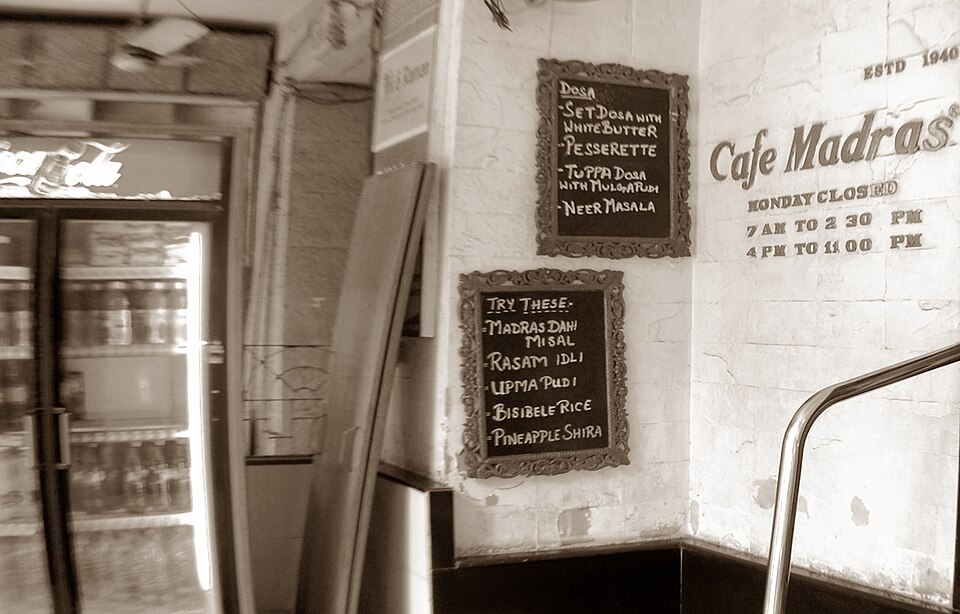 DOSA
-SET DOSA WITH
WHITE BUTTER
-PESSERETTE
-TUPPA DOSA
WITH MULGAPUDI
-NEER MASALA
TRY THESE-
-MADRAS DAHI
MISAL
-RASAM IDLI
-UPMA PUDI
-BISIBELE RICE
-PINEAPPLE SHIRA
ESTD 1940
Cafe Madras®
MONDAY CLOSED
7 AM TO 2 30 PM
4 PM TO 11 00 PM